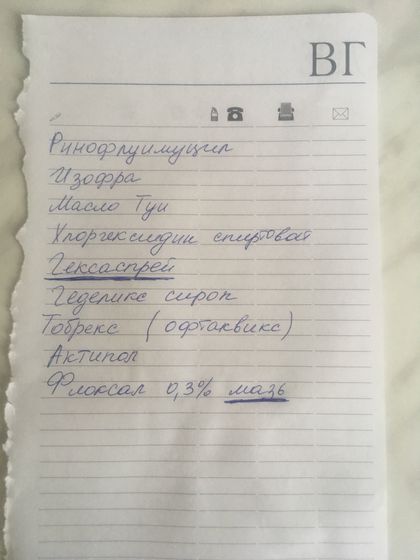 ВГ
Ринофлуимуцил
Изофра
Масло Туи
Хлоргексидин спиртовой
Гексаспрей
Геделикс сироп
Тобрекс (офтаквикс)
Актипол
Флоксал 0,3% мазь